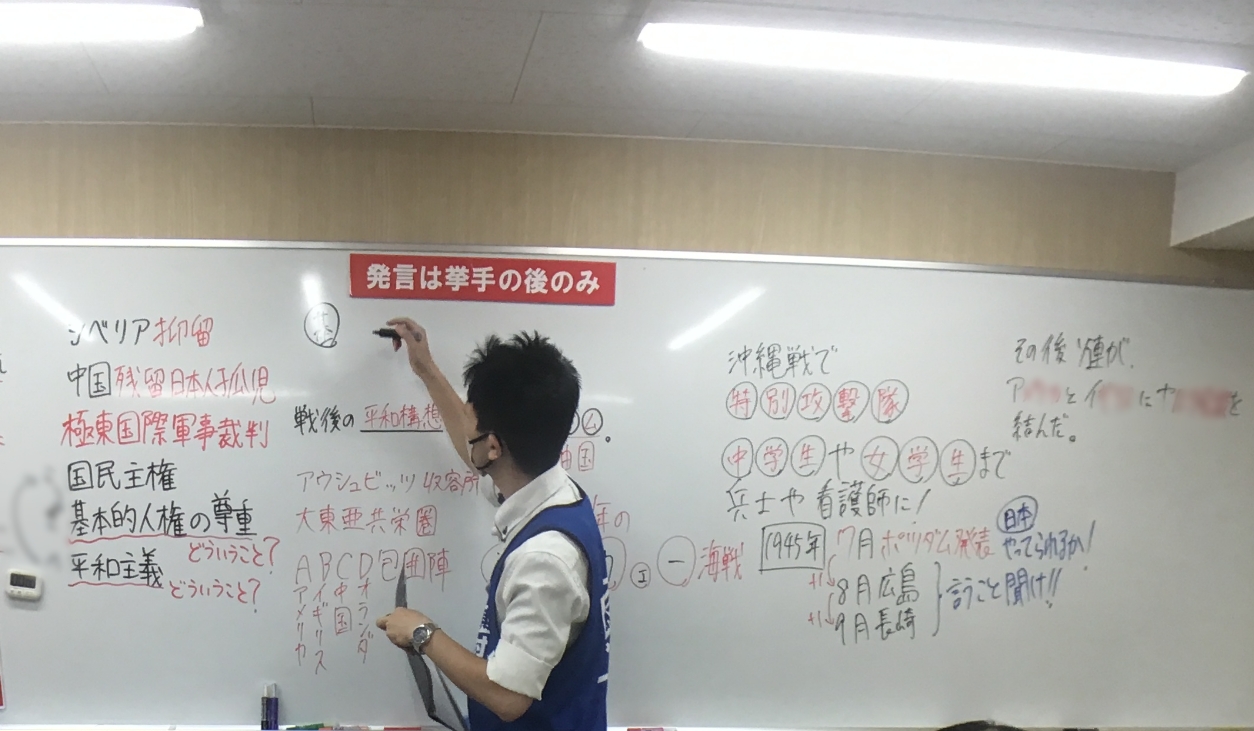 発言は挙手の後のみ
シベリア抑留
中国残留日本人孤児
極東国際軍事裁判
国民主権
基本的人権の尊重
どういうこと?
平和主義
どういうこと?
戦後の平和構想
アウシュビッツ収容所
大東亜共栄圏
ABCD包囲陣
アメリカ
イギリス
中国
オランダ
年の
海戦
沖縄戦で
特別攻撃隊
中学生や女学生まで
兵士や看護師に!
1945年 7月 ポツダム発表
日本
やってられるか!
8月広島
9月長崎
言うこと聞け!!
その後ソ連が、
ア とイ にナ を
結んだ。